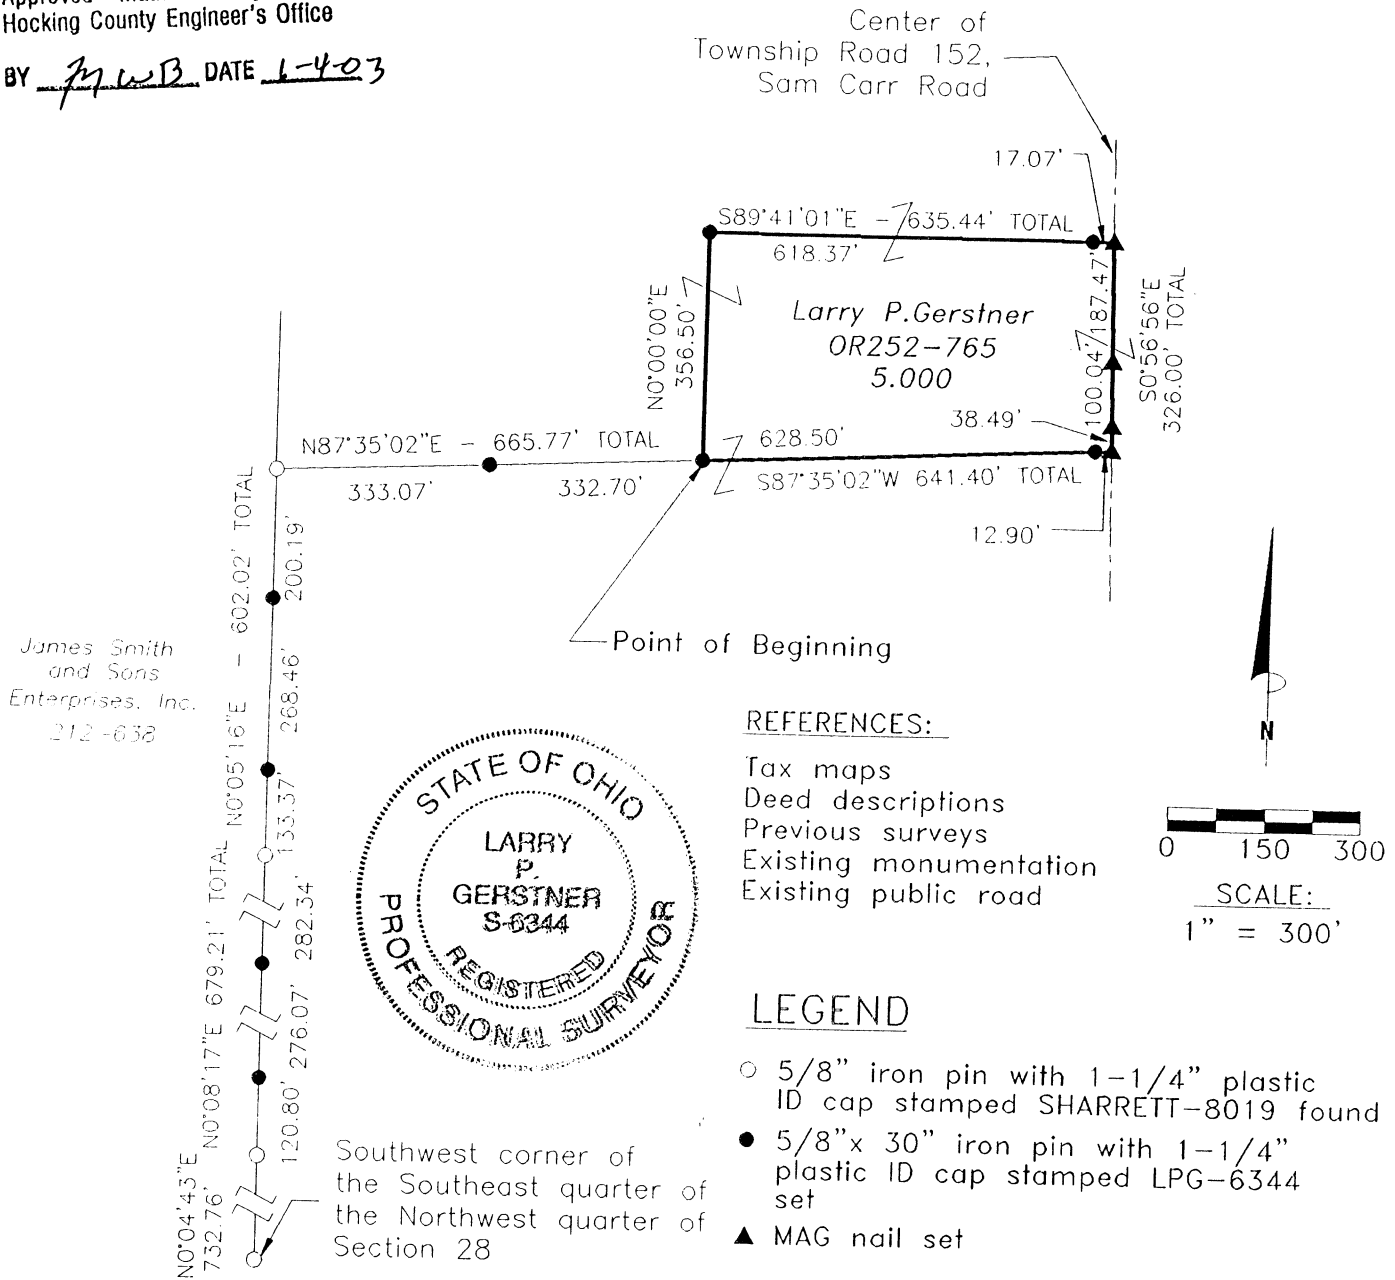 Hocking County Engineer's Office
BY MWB DATE 1-4-03
Center of
Township Road 152,
Sam Carr Road
17.07'
S89°41'01"E - 635.44' TOTAL
618.37'
N0°00'00"E
356.50'
Larry P.Gerstner
OR252-765
5.000
187.47'
100.04'
S0°56'56"E
326.00' TOTAL
38.49'
628.50'
S87°35'02"W 641.40' TOTAL
12.90'
N87°35'02"E - 665.77' TOTAL
333.07'
332.70'
Point of Beginning
N0°05'16"E - 602.02' TOTAL
200.19'
268.46'
133.37'
James Smith
and Sons
Enterprises, Inc.
212-638
N0°08'17"E 679.21' TOTAL
282.34'
276.07'
120.80'
N0°04'43"E
732.76'
Southwest corner of
the Southeast quarter of
the Northwest quarter of
Section 28
STATE OF OHIO
LARRY
P.
GERSTNER
S-6344
REGISTERED
PROFESSIONAL SURVEYOR
REFERENCES:
Tax maps
Deed descriptions
Previous surveys
Existing monumentation
Existing public road
N
0 150 300
SCALE:
1" = 300'
LEGEND
5/8" iron pin with 1-1/4" plastic
ID cap stamped SHARRETT-8019 found
5/8"x 30" iron pin with 1-1/4"
plastic ID cap stamped LPG-6344
set
MAG nail set